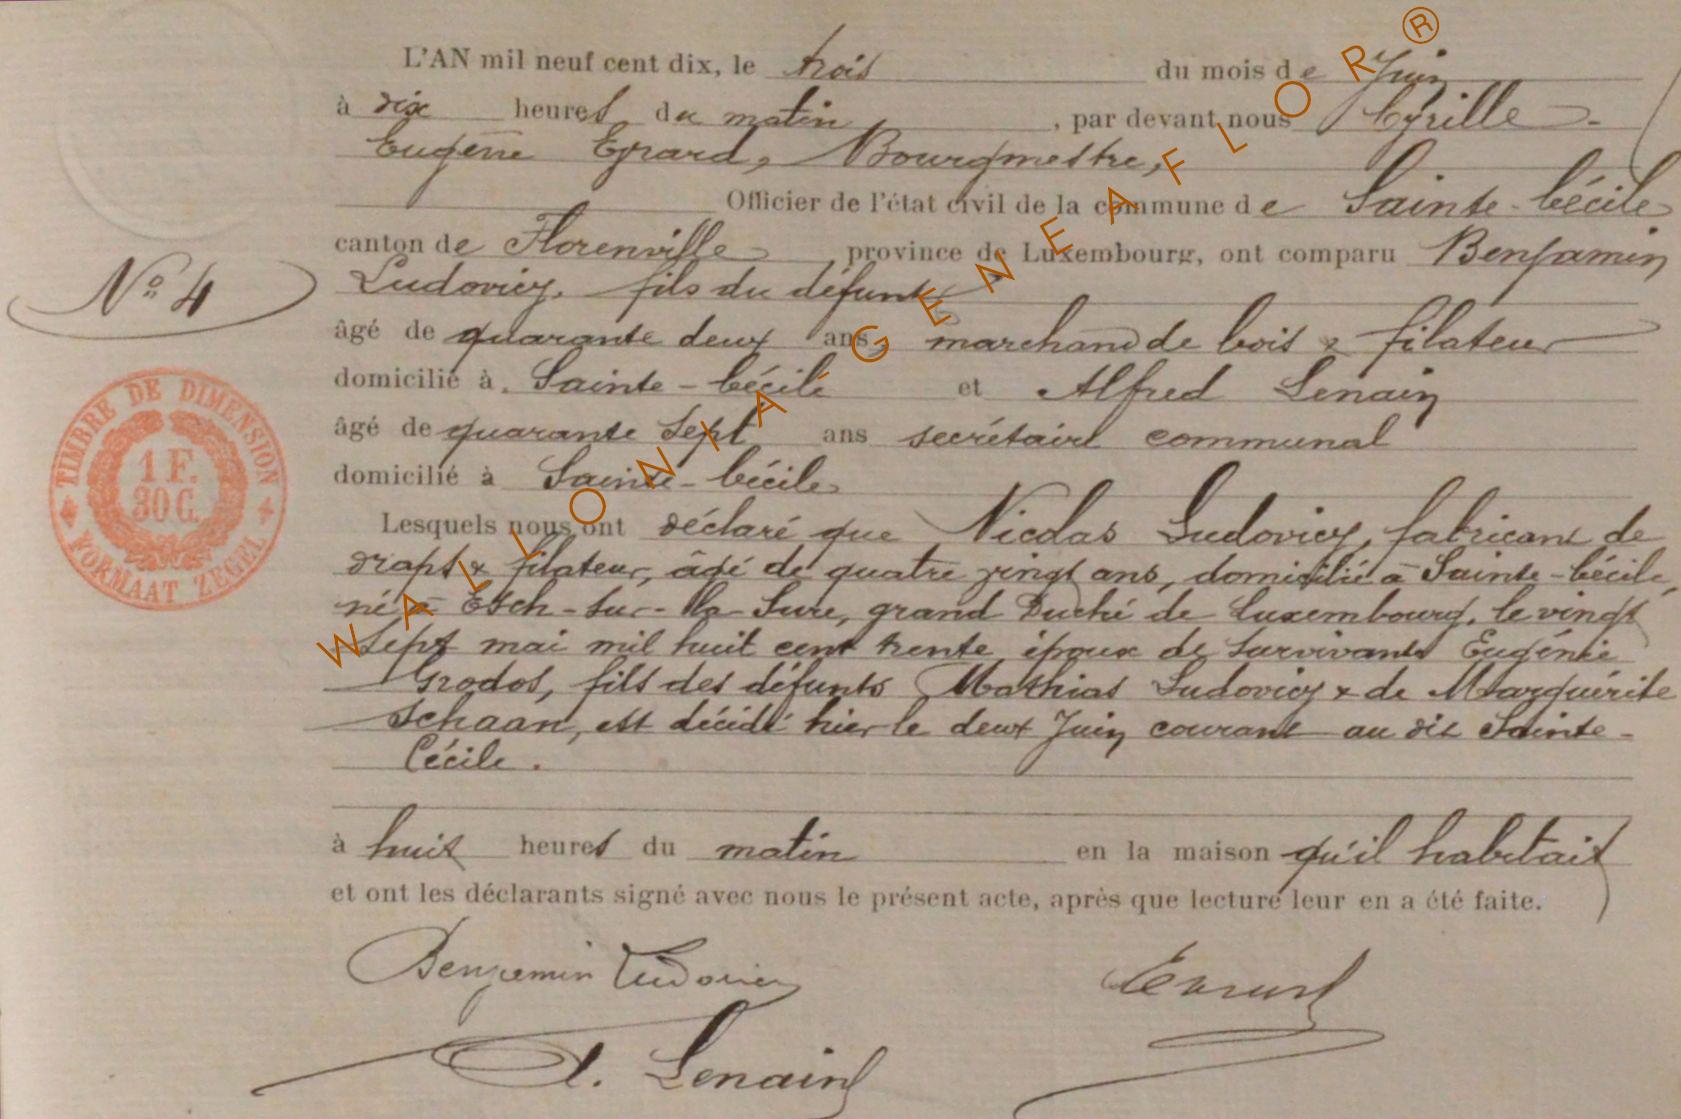 L'AN mil neuf cent dix, le trois du mois de Juin
à dix heures du matin, par devant nous Cyrille
Eugène Evrard, Bourgmestre,
Officier de l'état civil de la commune de Sainte-Cécile
canton de Florenville, province de Luxembourg, ont comparu Benjamin
Ludovicy, fils du défunt
N° 4
âgé de quarante deux ans, marchand de bois & filateur
domicilié à Sainte-Cécile et Alfred Lenain
âgé de quarante sept ans secrétaire communal
domicilié à Sainte-Cécile
Lesquels nous ont déclaré que Nicolas Ludovicy, fabricant de
draps & filateur, âgé de quatre vingt ans, domicilié à Sainte-Cécile,
né à Esch-sur-la-Sure, grand Duché de Luxembourg, le vingt
sept mai mil huit cent trente époux de survivante Eugénie
Grodos, fils des défunts Mathias Ludovicy & de Marguérite
Schaan, est décédé hier le deux Juin courant au dit Sainte-
Cécile.
à huit heures du matin en la maison qu'il habitait
et ont les déclarants signé avec nous le présent acte, après que lecture leur en a été faite.
Benjamin Ludovicy
Evrard
A. Lenain
TIMBRE DE DIMENSION
1 F.
30 C.
FORMAAT ZEGEL
WALLONIA GENEAFLOR ®